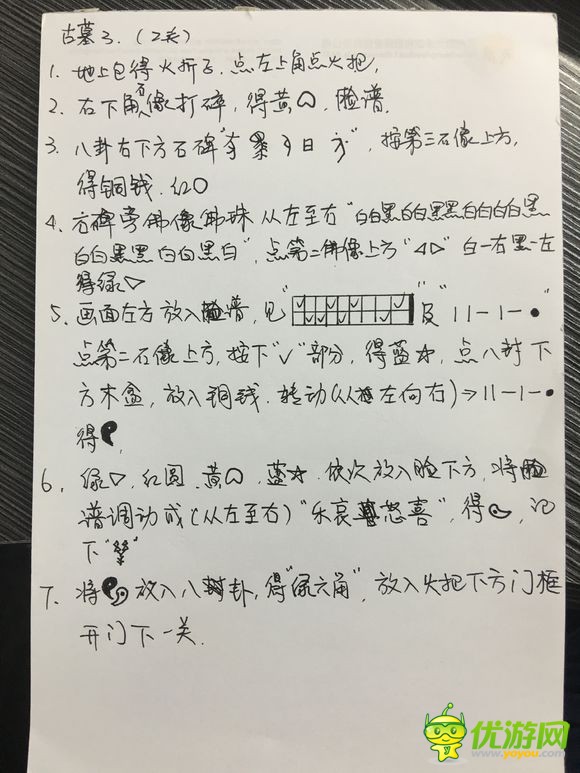 古墓3.(2关)
1. 地上包得火折子.点左上角点火把,
2. 右下角石像打碎,得黄,脸谱.
3. 八卦右下方石碑",按第三石像上方,
得铜钱.红○
4. 右碑旁佛像佛珠从左至右"白白黑白白黑黑白白白白黑
白白黑黑白白黑白",点第二佛像上方"◁▷"白一右黑一左
得绿▷
5. 画面左方放入脸谱,见""及"11-1-●"
点第二石像上方,按下"√"部分,得蓝☆,点八卦下
方木盒,放入铜钱.转动(从左向右)→11-1-●
得
6. 绿▷.红圆.黄.蓝☆.依次放入脸下方,将脸
谱调动成(从左至右)"乐哀怒喜",得,记
下
7. 将☯放入八卦,得"绿六角",放入火把下方门框
开门下一关.
优游网
www.yoyou.com